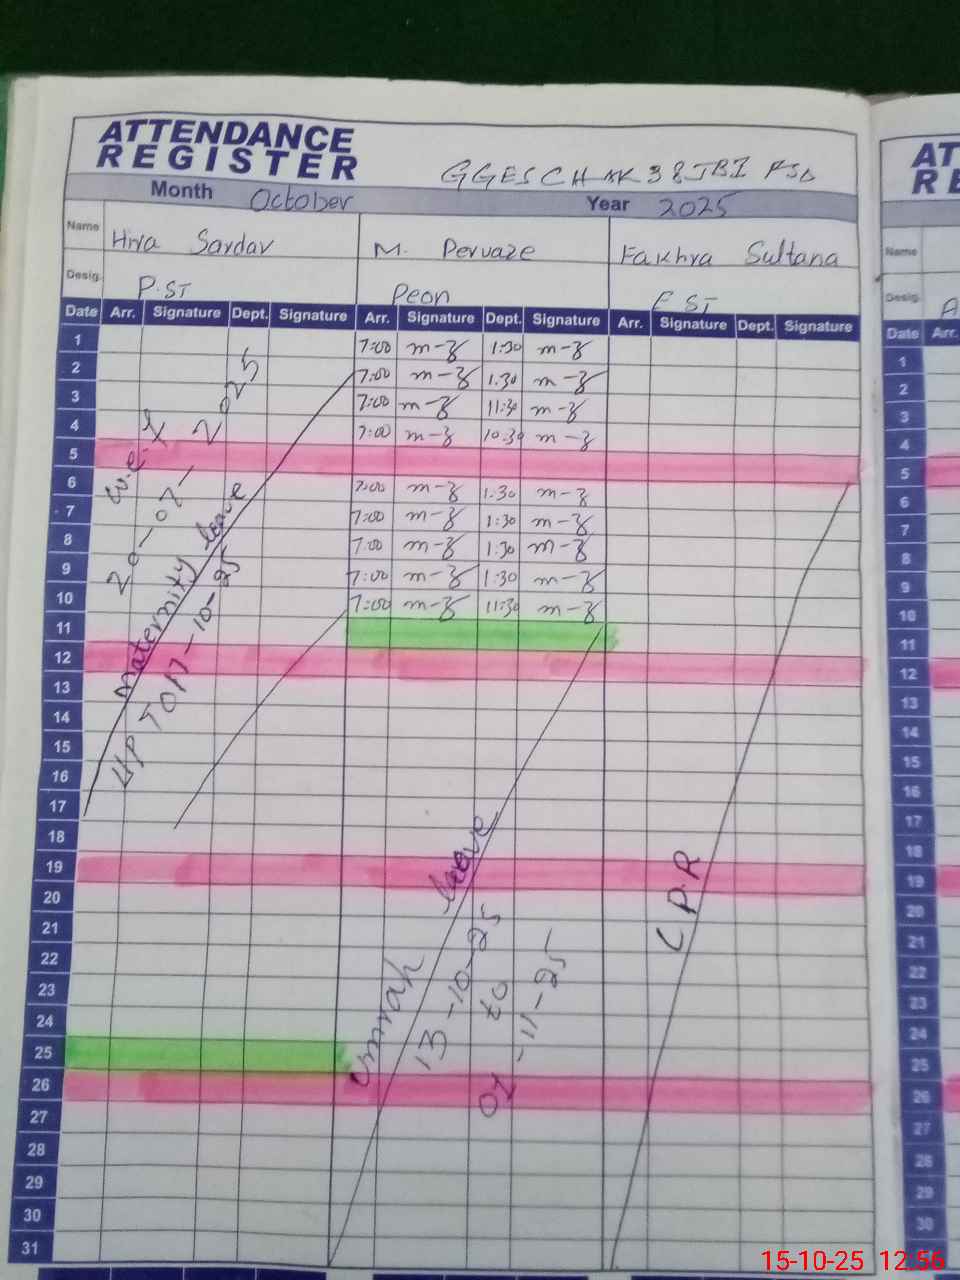 ATTENDANCE
REGISTER
GGES CHAK 38 JBI FSD
Month October Year 2025
Name Hira Sardar M. Pervaze Fakhra Sultana
Desig. P.ST Peon EST
Date Arr. Signature Dept. Signature Arr. Signature Dept. Signature Arr. Signature Dept. Signature
1 7:00 m-z 1:30 m-z
2 7:00 m-z 1:30 m-z
3 7:00 m-z 11:30 m-z
4 7:00 m-z 10:30 m-z
5
6 7:00 m-z 1:30 m-z
7 7:00 m-z 1:30 m-z
8 7:00 m-z 1:30 m-z
9 7:00 m-z 1:30 m-z
10 7:00 m-z 11:30 m-z
11
12
13
14
15
16
17
18
19
20
21
22
23
24
25
26
27
28
29
30
31
w.e.f
20-07-2025
maternity leave
UP TO 17-10-25
Ummrah leave
13-10-25
to
01-11-25
L.P.R
AT
RE
Name
Desig. A
Date Arr.
1
2
3
4
5
6
7
8
9
10
11
12
13
14
15
16
17
18
19
20
21
22
23
24
25
26
27
28
29
30
15-10-25 12:56